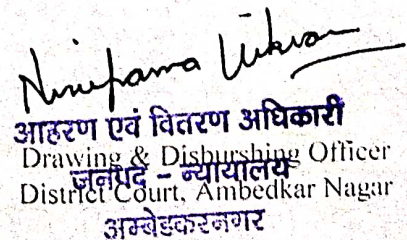 Nirupama Vikram
आहरण एवं वितरण अधिकारी
Drawing & Disburshing Officer
जनपद – न्यायालय
District Court, Ambedkar Nagar
अम्बेडकरनगर